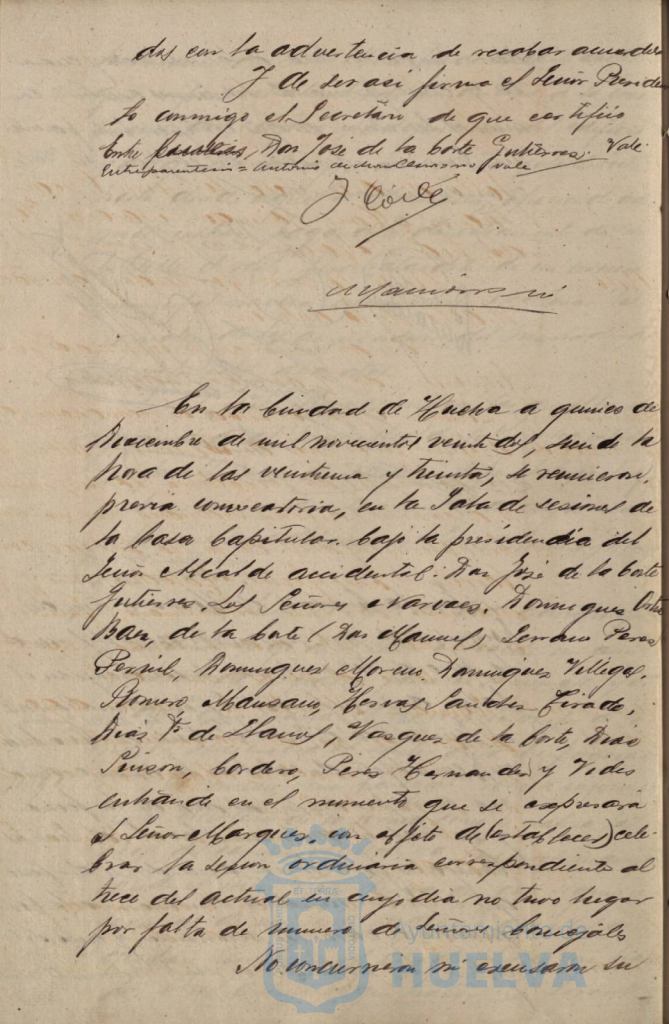 das con la advertencia de recabar acuerdo
Y de ser así firma el Señor Presiden
te conmigo el Secretario de que certifico
Entre Don José de la Corte Gutierres. Vale
Entreparentesis = Antonio no vale
J Corte
En la Ciudad de Huelva a quince de
Diciembre de mil novecientos veintidos, siendo la
hora de las veintiuna y treinta, se reunieron,
previa convocatoria, en la Sala de sesiones de
la Casa Capitular bajo la presidencia del
Señor Alcalde accidental: Don José de la Corte
Gutierres, Los Señores Narvaes, Domingues
Baez, de la Corte (Don Manuel) Serrano Peres
Domingues Moreno, Domingues Villegas,
Romero, Manzano, Hervas Sanches Tirado,
Dias Fz de Llanos, Vasques de la Corte, Dias
Pinson, Cordero, Peres Hernandes y Vides
entrando en el momento que se expresará
el Señor Marques, con objeto de (establecer) cele
brar la sesion ordinaria correspondiente al
trece del actual en cuyo dia no tuvo lugar
por falta de numero de Señores Concejales
No concurrieron ni excusaron su
Ayuntamiento de
HUELVA